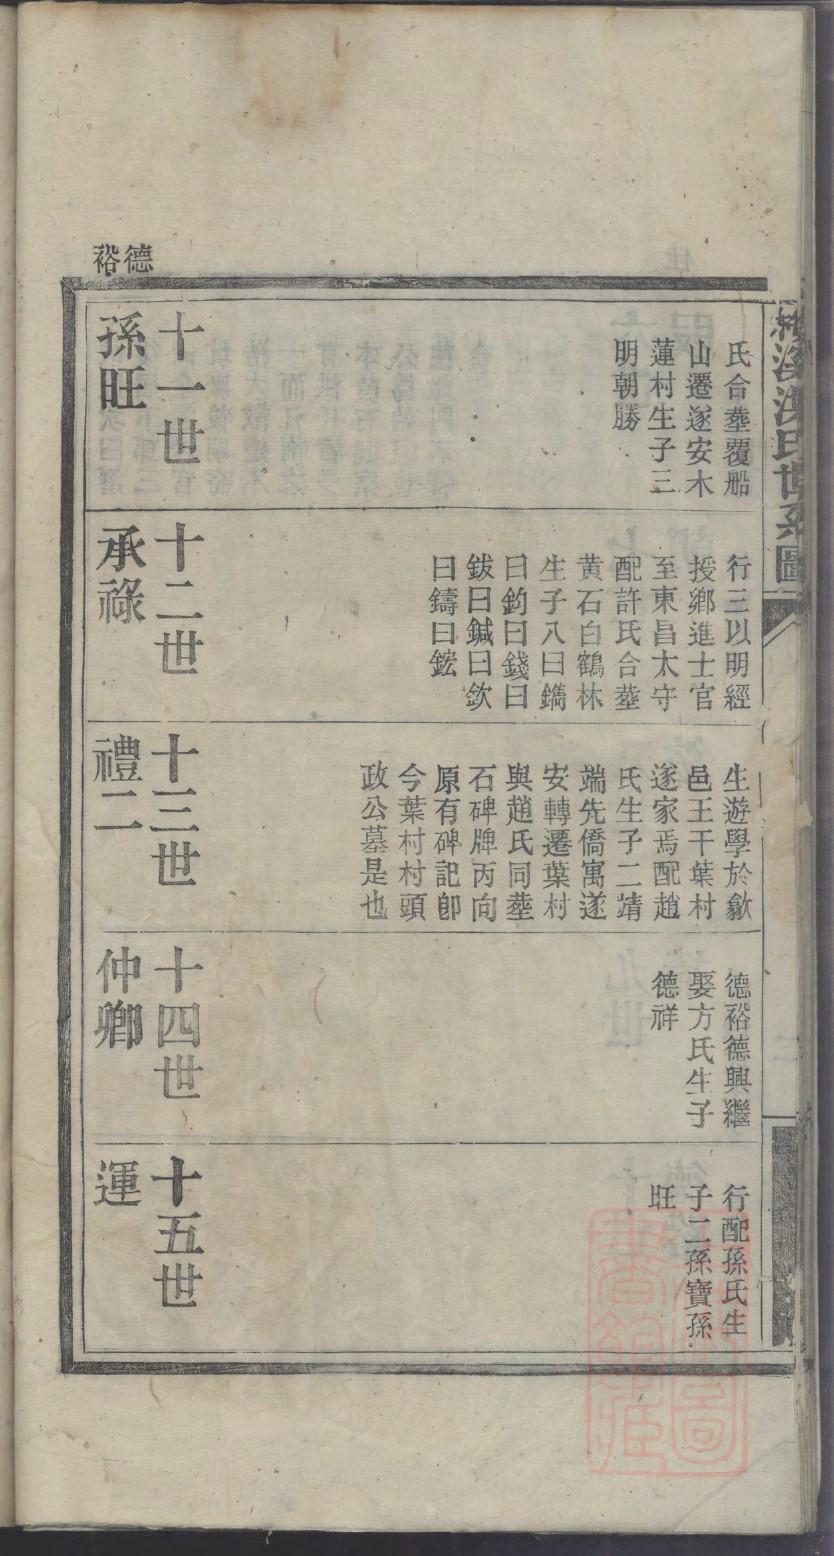 氏合塟覆船
山遷遂安木
蓮村生子三
明朝勝
行三以明經
授鄉進士官
至東昌太守
配許氏合塟
黃石白鶴林
生子八曰鐫
曰鈞曰錢曰
鈸曰鍼曰欽
曰鑄曰鋐
生遊學於歙
邑王干葉村
遂家焉配趙
氏生子二靖
端先僑寓遂
安轉遷葉村
與趙氏同塟
石碑牌丙向
原有碑記卽
今葉村村頭
政公墓是也
德裕德興繼
娶方氏生子
德祥
行配孫氏生
子二孫寶孫
旺
德裕
十一世
孫旺
十二世
承祿
十三世
禮二
十四世
仲卿
十五世
運
溪洪氏世系圖